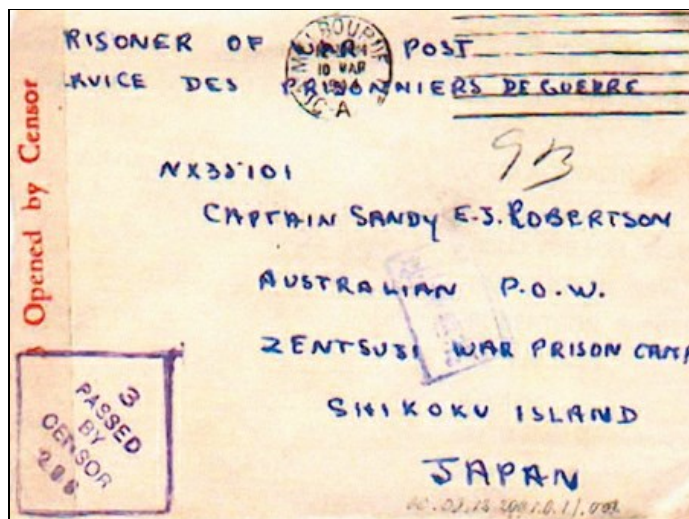 RISONER OF WAR POST
RVICE DES PRISONNIERS DE GUERRE
MELBOURNE
10 MAR
A
Opened by Censor
93
NX35101
CAPTAIN SANDY E.J. ROBERTSON
AUSTRALIAN P.O.W.
ZENTSUJI WAR PRISON CAMP
SHIKOKU ISLAND
JAPAN
3
PASSED
BY
CENSOR
206